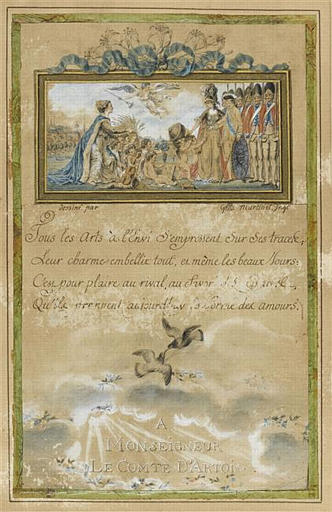 Dessiné par Gilb. Martinet Ing.
Tous les Arts à l'Envi S'empressent Sur Ses traces,
Leur charme embellit tout, et même les beaux Jours:
C'est pour plaire au rival, au
Qu'ils prennent aujourd'huy la forme des amours.
A
MONSEIGNEUR
LE COMTE D'ARTOIS